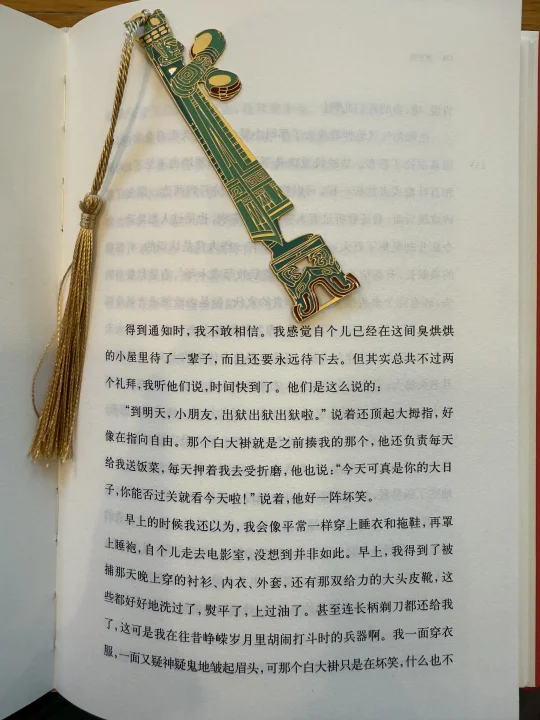 得到通知时，我不敢相信。我感觉自个儿已经在这间臭烘烘
的小屋里待了一辈子，而且还要永远待下去。但其实总共不过两
个礼拜，我听他们说，时间快到了。他们是这么说的：
“到明天，小朋友，出狱出狱出狱啦。”说着还顶起大拇指，好
像在指向自由。那个白大褂就是之前揍我的那个，他还负责每天
给我送饭菜，每天押着我去受折磨，他也说：“今天可真是你的大日
子，你能否过关就看今天啦！”说着，他好一阵坏笑。
早上的时候我还以为，我会像平常一样穿上睡衣和拖鞋，再罩
上睡袍，自个儿走去电影室，没想到并非如此。早上，我得到了被
捕那天晚上穿的衬衫、内衣、外套，还有那双给力的大头皮靴，这
些都好好地洗过了，熨平了，上过油了。甚至连长柄剃刀都还给我
了，这可是我在往昔峥嵘岁月里胡闹打斗时的兵器啊。我一面穿衣
服，一面又疑神疑鬼地皱起眉头，可那个白大褂只是在坏笑，什么也不